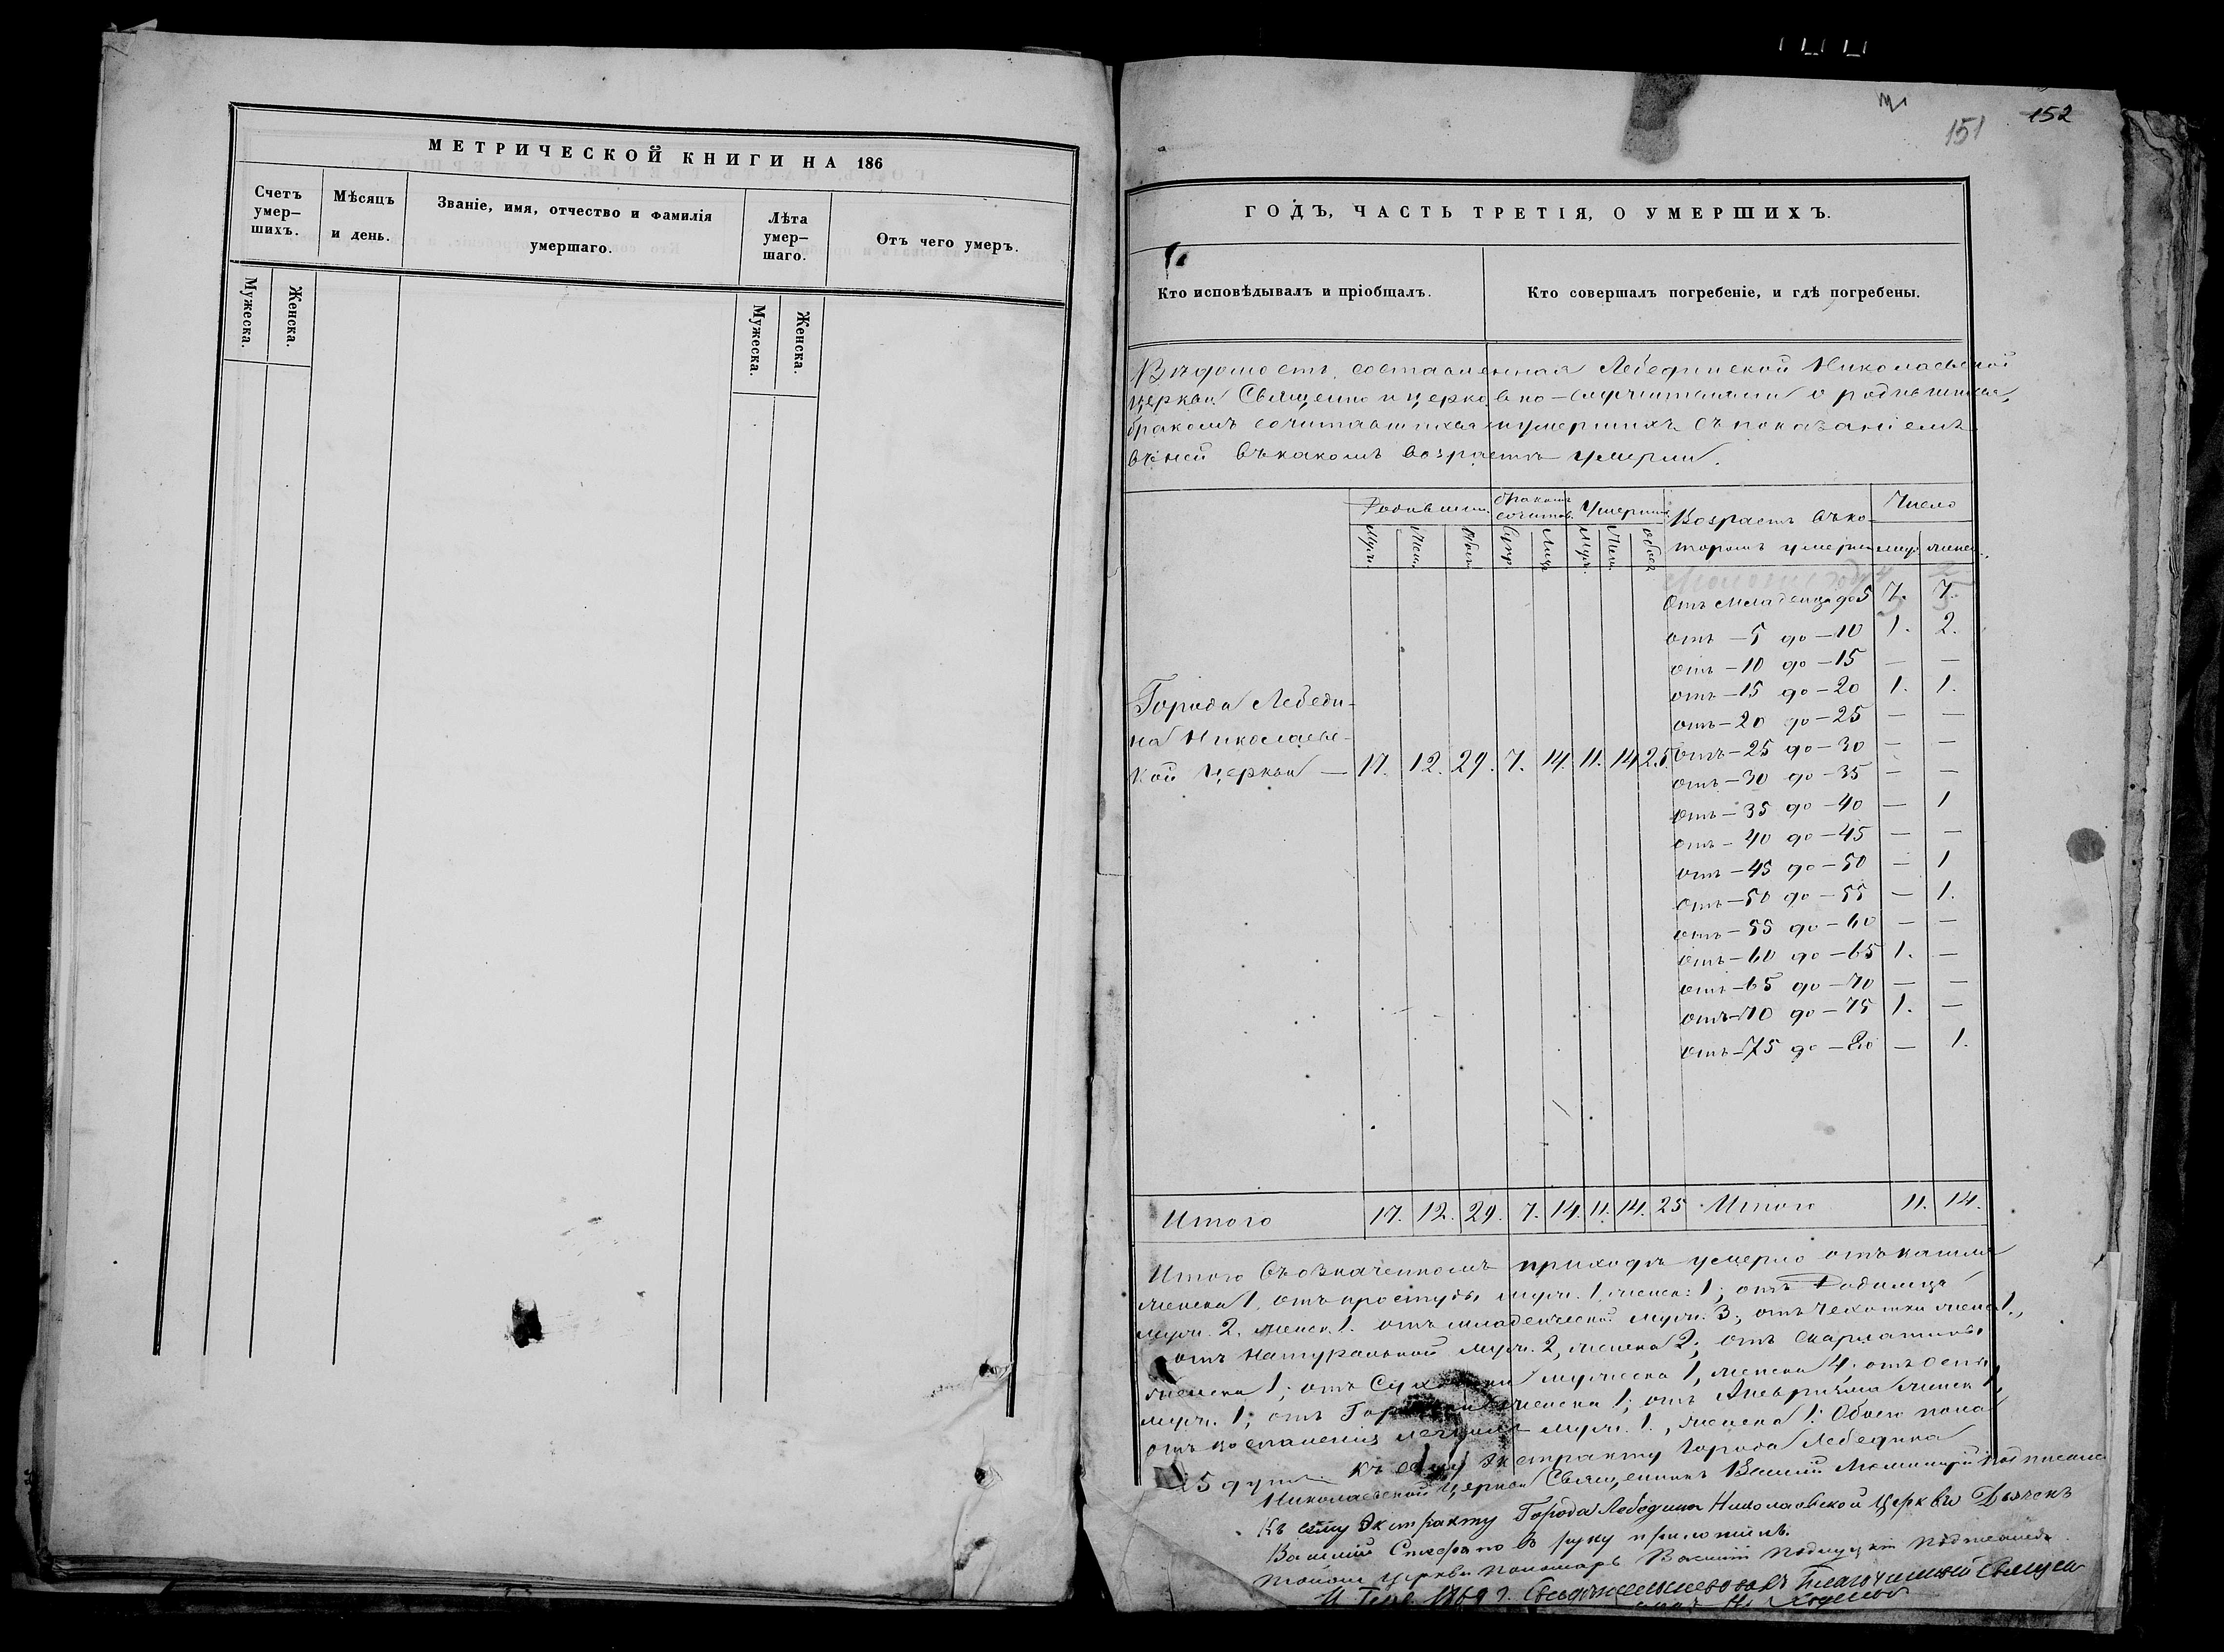 МЕТРИЧЕСКОЙ КНИГИ НА 186
Счетъ умер-
шихъ.
Мѣсяцъ
и день.
Званіе, имя, отчество и фамилія
умершаго.
Лѣта
умер-
шаго.
Отъ чего умеръ.
Мужеска.
Женска.
Мужеска.
Женска.
151 152
ГОДЪ, ЧАСТЬ ТРЕТІЯ, О УМЕРШИХЪ.
Кто исповѣдывалъ и пріобщалъ.
Кто совершалъ погребеніе, и гдѣ погребены.
Вѣдомость, составленная Лебединской Николаевской
церкви Священно и церковно-служителями о родившихся,
бракомъ сочитавшихся и умершихъ съ показаніемъ
въ ней въ какомъ возрастѣ умерли.
Родивших. Бракомъ сочитав. Умерших. Возрастъ въ ко- Число
Муж. Жен. Обоего Супр. Лицъ Муж. Жен. обоего торомъ умерли муж. женск.
Отъ младенца до 5 7. 7.
отъ — 5 до — 10 1. 2.
отъ — 10 до — 15 — —
отъ — 15 до — 20 1. 1.
отъ — 20 до — 25 — —
отъ — 25 до — 30 — —
отъ — 30 до — 35 — —
отъ — 35 до — 40 — 1
отъ — 40 до — 45 — —
отъ — 45 до — 50 — 1
отъ — 50 до — 55 — 1.
отъ — 55 до — 60 — —
отъ — 60 до — 65 1. —
отъ — 65 до — 70 — —
отъ — 70 до — 75 1. —
отъ — 75 до — 80 — 1.
Города Лебеди-
на Николаевс-
кой церкви — 17. 12. 29. 7. 14. 11. 14. 25.
Итого 17. 12. 29. 7. 14. 11. 14. 25 Итого 11. 14.
Итого въ означенномъ приходѣ умерло отъ кашля
женска 1, отъ простуды муж. 1, женск: 1; отъ Родимца
муж. 2. женск. 1. отъ младенческой муж. 3; отъ чехотки женс. 1.,
отъ Натуральной муж. 2, женска 2; отъ скарлатины
женска 1; отъ мужеска 1, женска 4; отъ оспы
муж. 1; отъ женска 1; отъ Аневризма женск 1,
отъ воспаленія легкихъ муж. 1., женска 1. Обоего пола
25 душъ. Къ сему экстракту Города Лебедина
Николаевской церкви Священникъ подписался
Къ сему экстракту Города Лебедина Николаевской церкви Дьячекъ
Василій Стефановъ руку приложилъ.
тойже церкви пономарь Василій подписался
1869 г. свидѣтельствовалъ Благочинный Священ